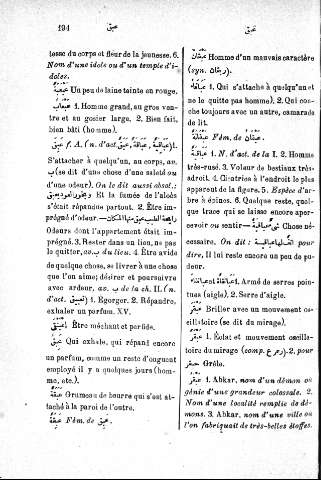 194
عبق
عبق
tesse du corps et fleur de la jeunesse. 6.
Nom d'une idole ou d'un temple d'i-
doles.
Un peu de laine teinte en rouge.
1. Homme grand, au gros ven-
tre et au gosier large. 2. Bien fait,
bien bâti (homme).
عبق f. A. (n. d'act.
S'attacher à quelqu'un, au corps, av.
ب (se dit d'une chose d'une saleté ou
d'une odeur). On le dit aussi absol.:
Et la fumée de l'aloès
s'était répandue partout. 2. Être im-
prégné d'odeur.
Odeurs dont l'appartement était im-
prégné. 3. Rester dans un lieu, ne pas
le quitter, av. ب du lieu. 4. Être avide
de quelque chose, se livrer à une chose
que l'on aime; désirer et poursuivre
avec ardeur, av. ب de la ch. II. (n.
d'act. تعبيق) 1. Égorger. 2. Répandre,
exhaler un parfum. XV.
Être méchant et perfide.
عبق Qui exhale, qui répand encore
un parfum, comme un reste d'onguent
employé il y a quelques jours (hom-
me, etc.).
عبقة Grumeau de beurre qui s'est at-
taché à la paroi de l'outre.
عبقة Fém. de عبق.
Homme d'un mauvais caractère
(syn.
1. Qui s'attache à quelqu'un et
ne le quitte pas homme). 2. Qui cou-
che toujours avec un autre, camarade
de lit.
Fém. de
عباقية 1. N. d'act. de la I. 2. Homme
très-rusé. 3. Voleur de bestiaux très-
adroit. 4. Cicatrices à l'endroit le plus
apparent de la figure. 5. Espèce d'ar-
bre à épines. 6. Quelque reste, quel-
que trace qui se laisse encore aper-
cevoir ou sentir Chose né-
cessaire. On dit: pour
dire, Il lui reste encore un peu de pu-
deur.
1. Armé de serres poin-
tues (aigle). 2. Serre d'aigle.
عبقر Briller avec un mouvement os-
cillatoire (se dit du mirage).
عبقر 1. Éclat et mouvement oscilla-
toire du mirage (comp. 2. pour
Grêle.
عبقر 1. Abkar, nom d'un démon ou
génie d'une grandeur colossale. 2.
Nom d'une localité remplie de dé-
mons. 3. Abkar, nom d'une ville où
l'on fabriquait de très-belles étoffes.